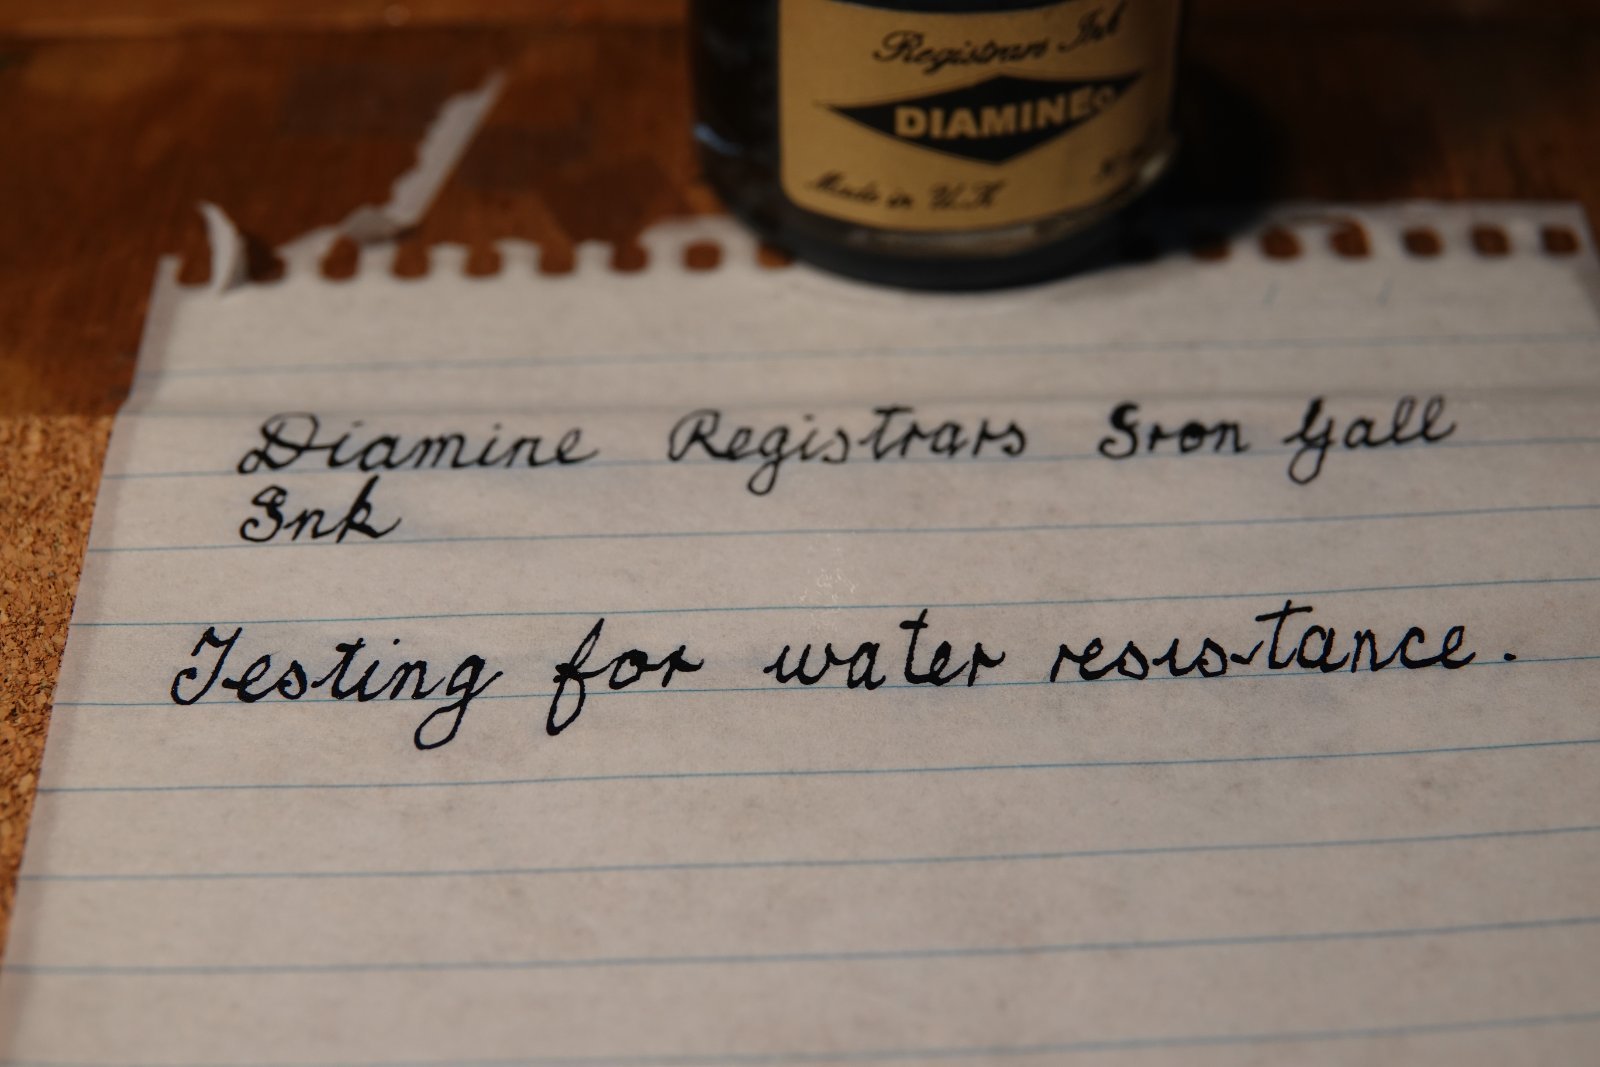 Registrars Ink
DIAMINE
Made in U.K
Diamine Registrars Iron Gall
Ink
Testing for water resistance.